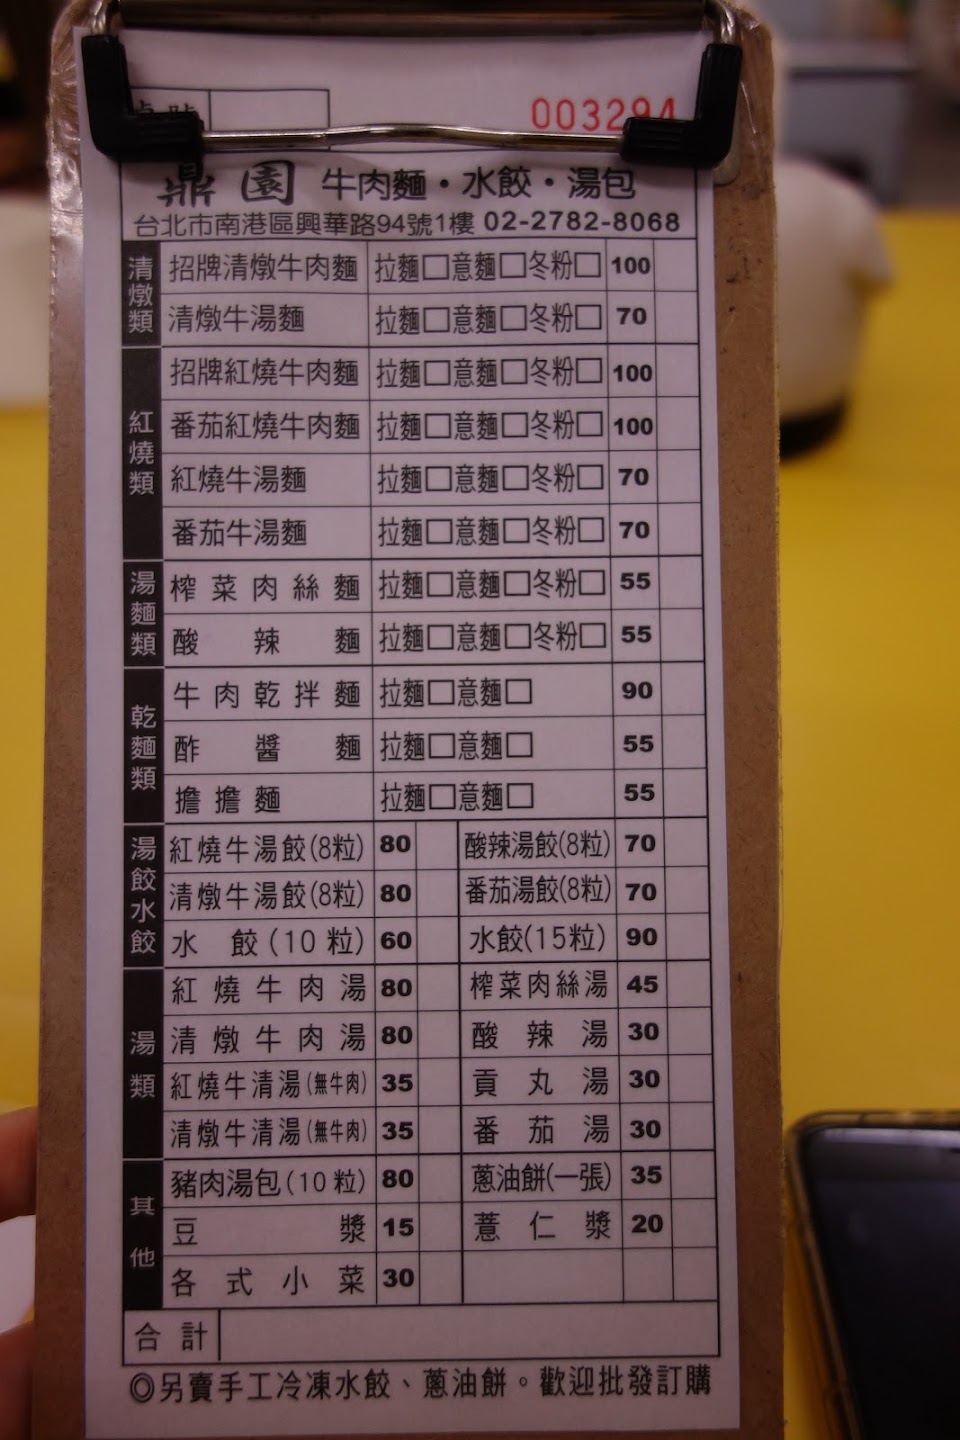 桌號
003294
鼎園 牛肉麵・水餃・湯包
台北市南港區興華路94號1樓 02-2782-8068
清燉類
招牌清燉牛肉麵 拉麵□意麵□冬粉□ 100
清燉牛湯麵 拉麵□意麵□冬粉□ 70
紅燒類
招牌紅燒牛肉麵 拉麵□意麵□冬粉□ 100
番茄紅燒牛肉麵 拉麵□意麵□冬粉□ 100
紅燒牛湯麵 拉麵□意麵□冬粉□ 70
番茄牛湯麵 拉麵□意麵□冬粉□ 70
湯麵類
榨菜肉絲麵 拉麵□意麵□冬粉□ 55
酸辣麵 拉麵□意麵□冬粉□ 55
乾麵類
牛肉乾拌麵 拉麵□意麵□ 90
酢醬麵 拉麵□意麵□ 55
擔擔麵 拉麵□意麵□ 55
湯餃水餃
紅燒牛湯餃(8粒) 80 酸辣湯餃(8粒) 70
清燉牛湯餃(8粒) 80 番茄湯餃(8粒) 70
水餃(10粒) 60 水餃(15粒) 90
湯類
紅燒牛肉湯 80 榨菜肉絲湯 45
清燉牛肉湯 80 酸辣湯 30
紅燒牛清湯(無牛肉) 35 貢丸湯 30
清燉牛清湯(無牛肉) 35 番茄湯 30
其他
豬肉湯包(10粒) 80 蔥油餅(一張) 35
豆漿 15 薏仁漿 20
各式小菜 30
合計
◎另賣手工冷凍水餃、蔥油餅。歡迎批發訂購